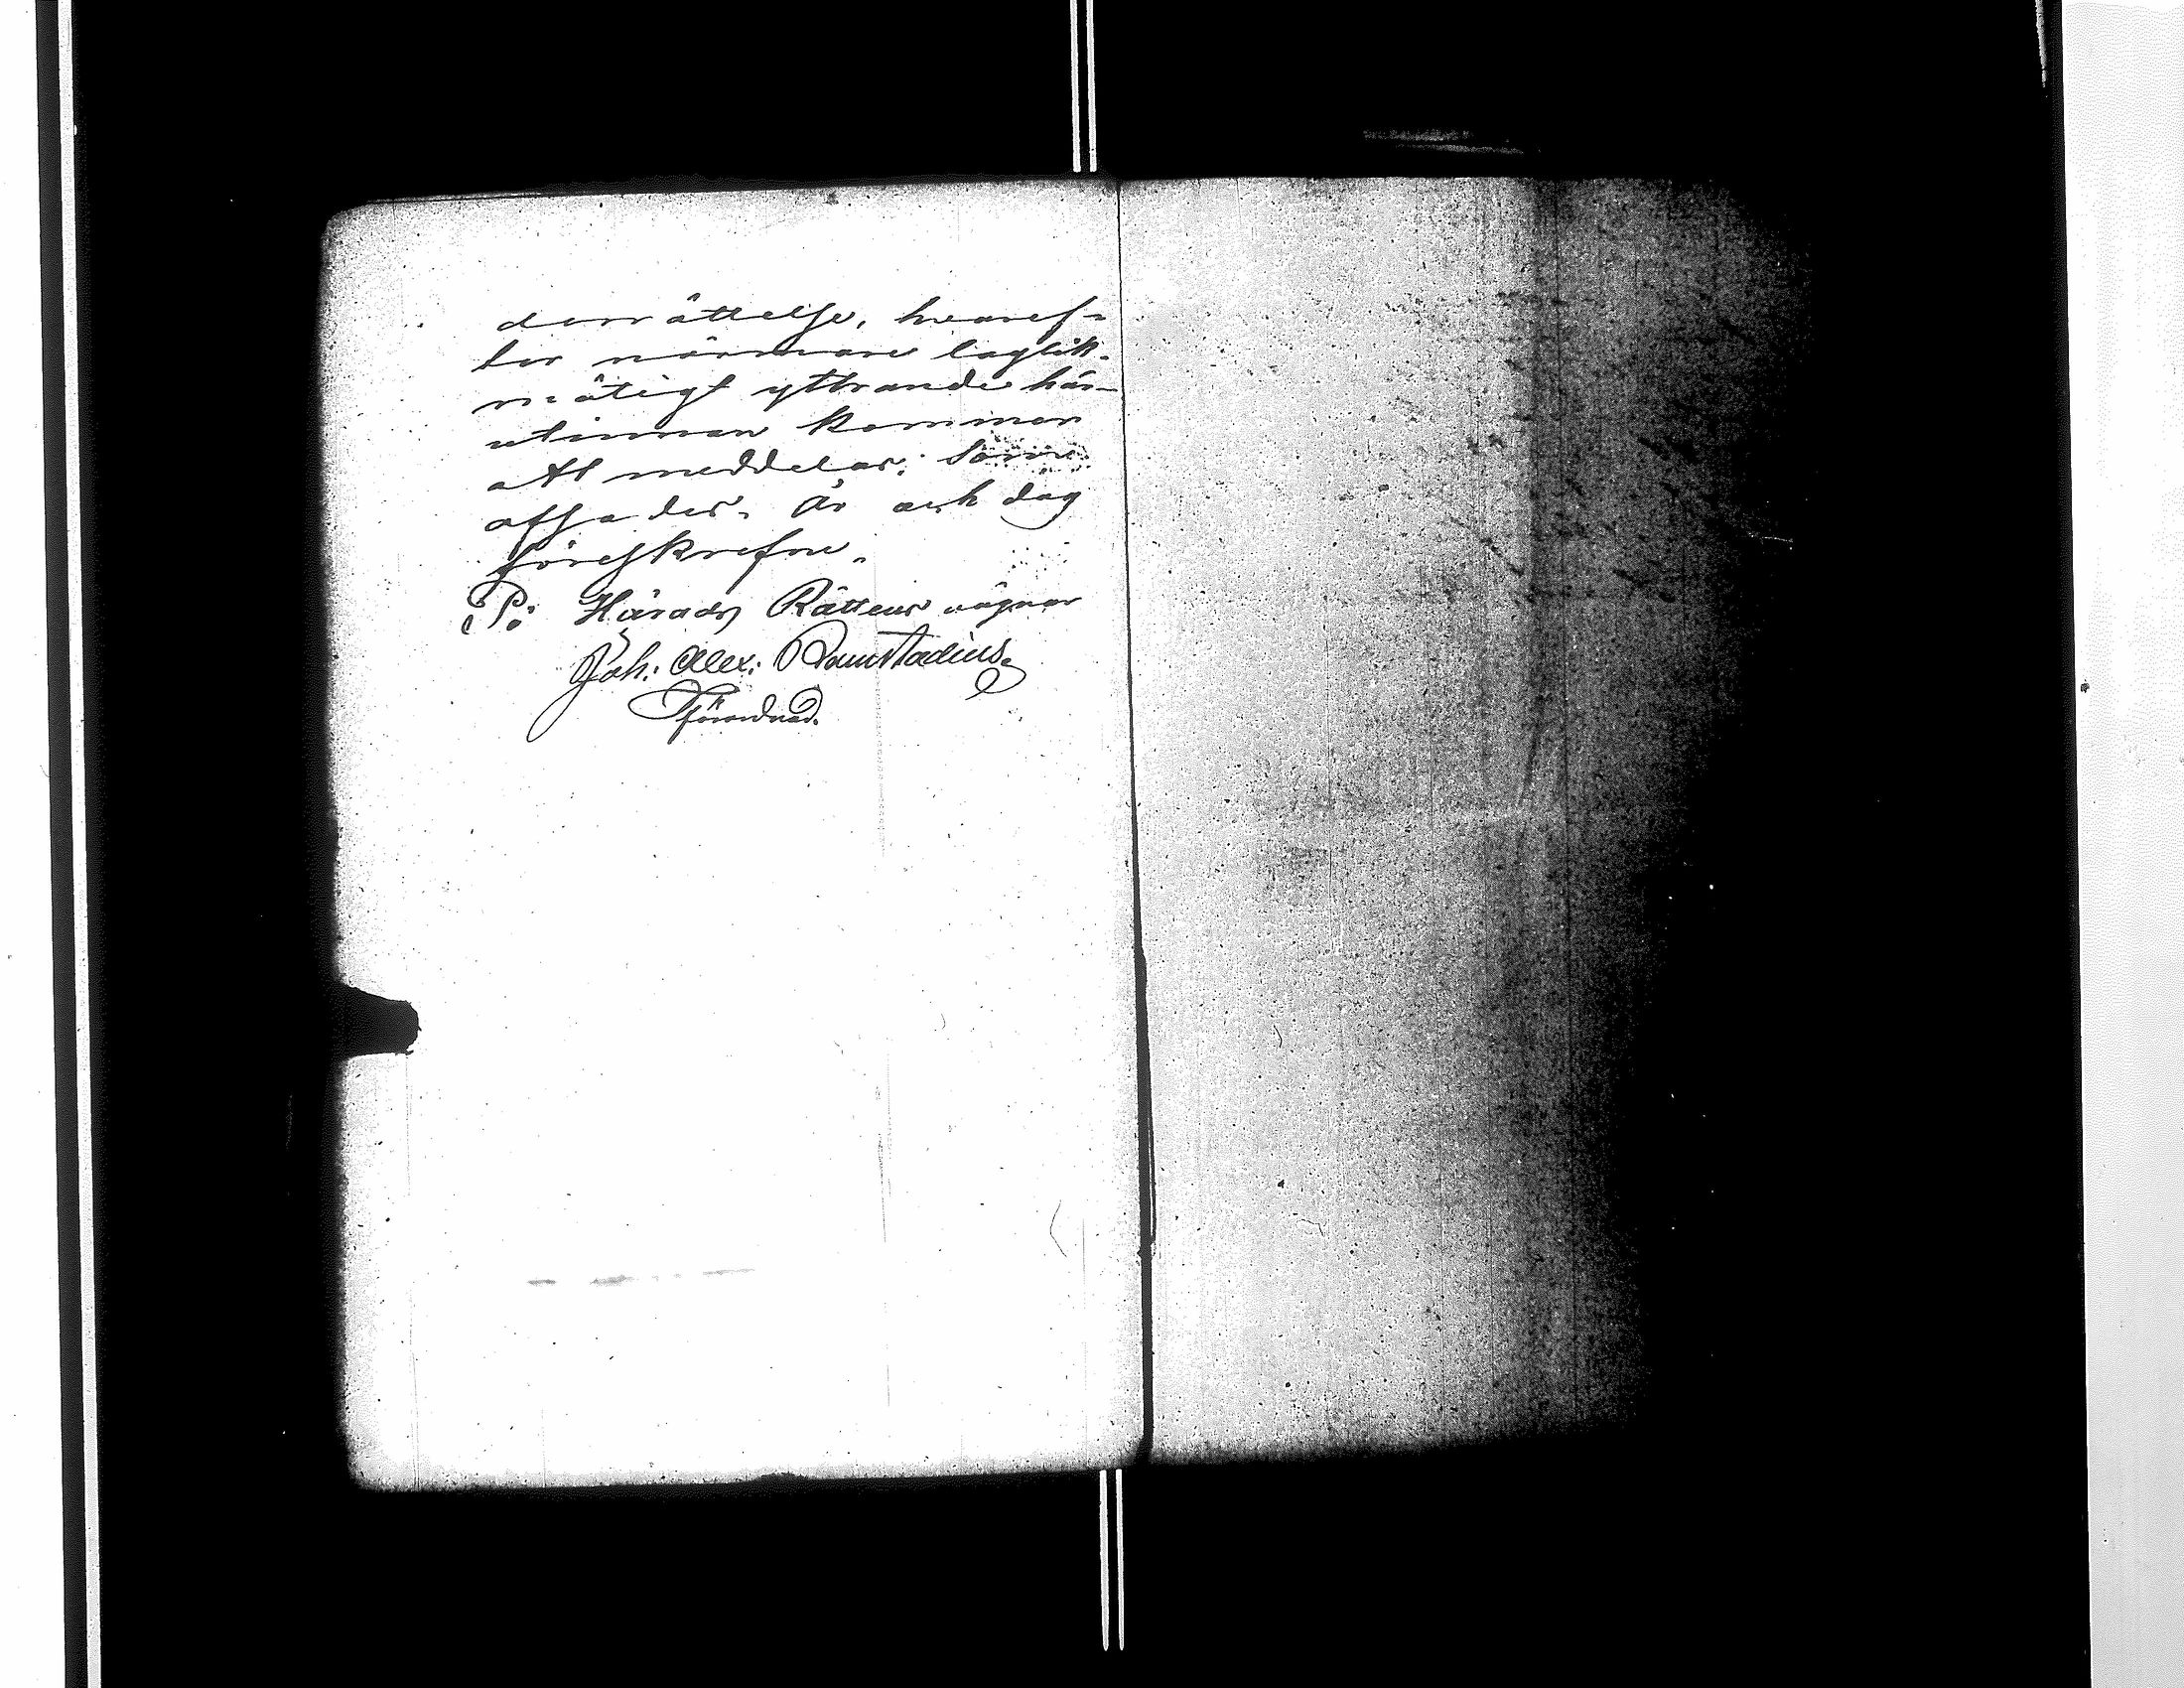 derrättelse, hvaref-
ter närmare laglik-
mätigt yttrande här-
utinnan kommer
att meddelas; Som
afsades. År och dag
föreskrefne.
På Härads Rättens vägnar
Joh: Alex: Ramstadius
förordnad.